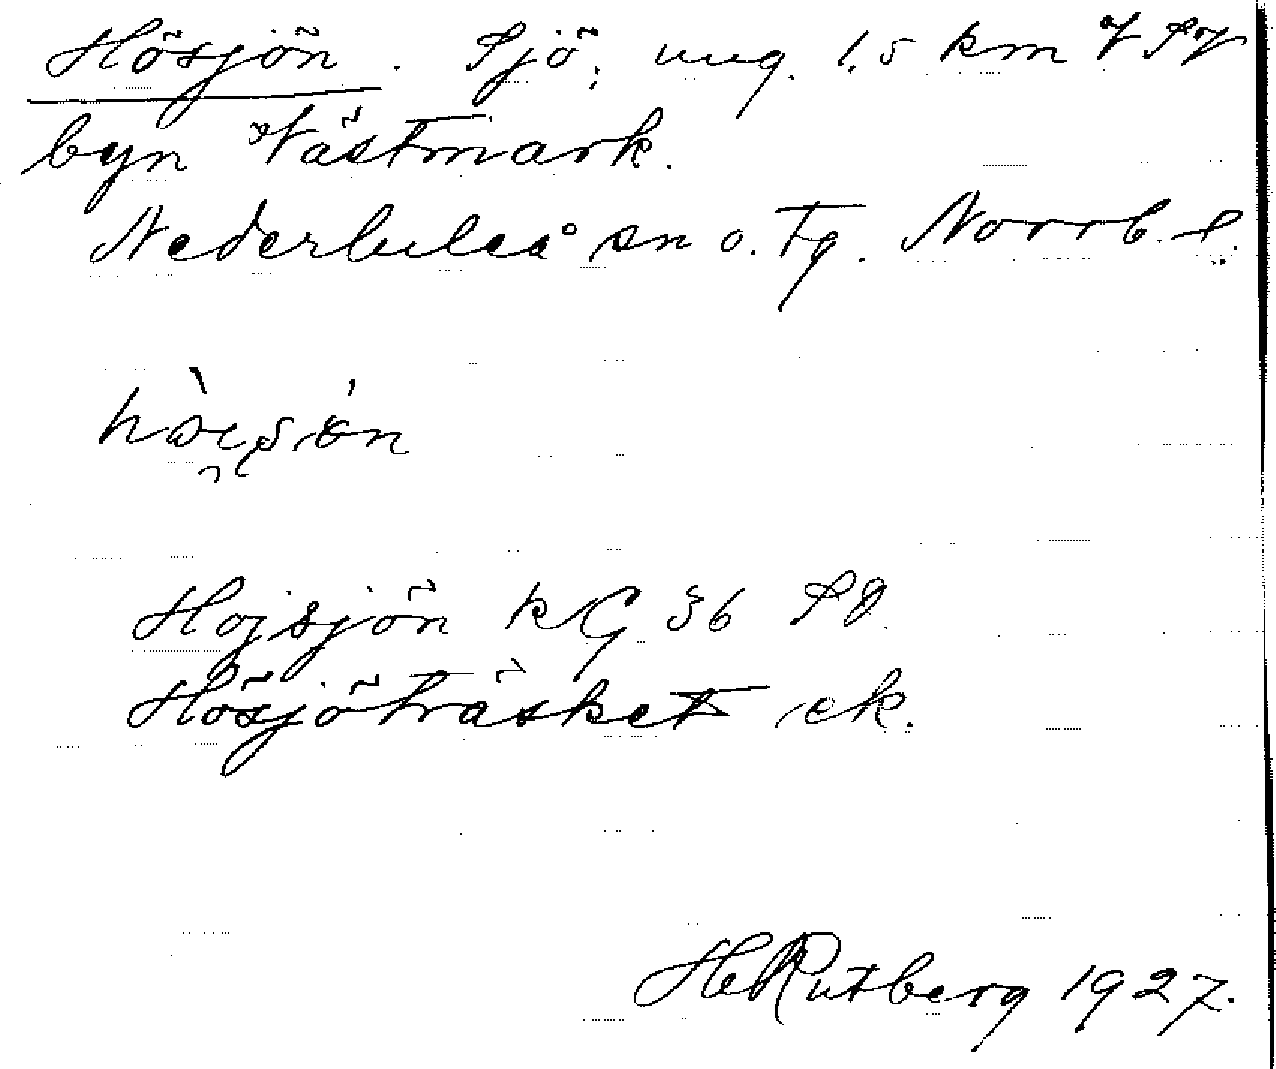 Hösjön. Sjö, ung. 1.5 km
byn Västmark.
Nederluleå sn o. Tg. Norrb. l.
Hojsjön KG 36
Hösjöträsket ek.
HeRutberg 1927.